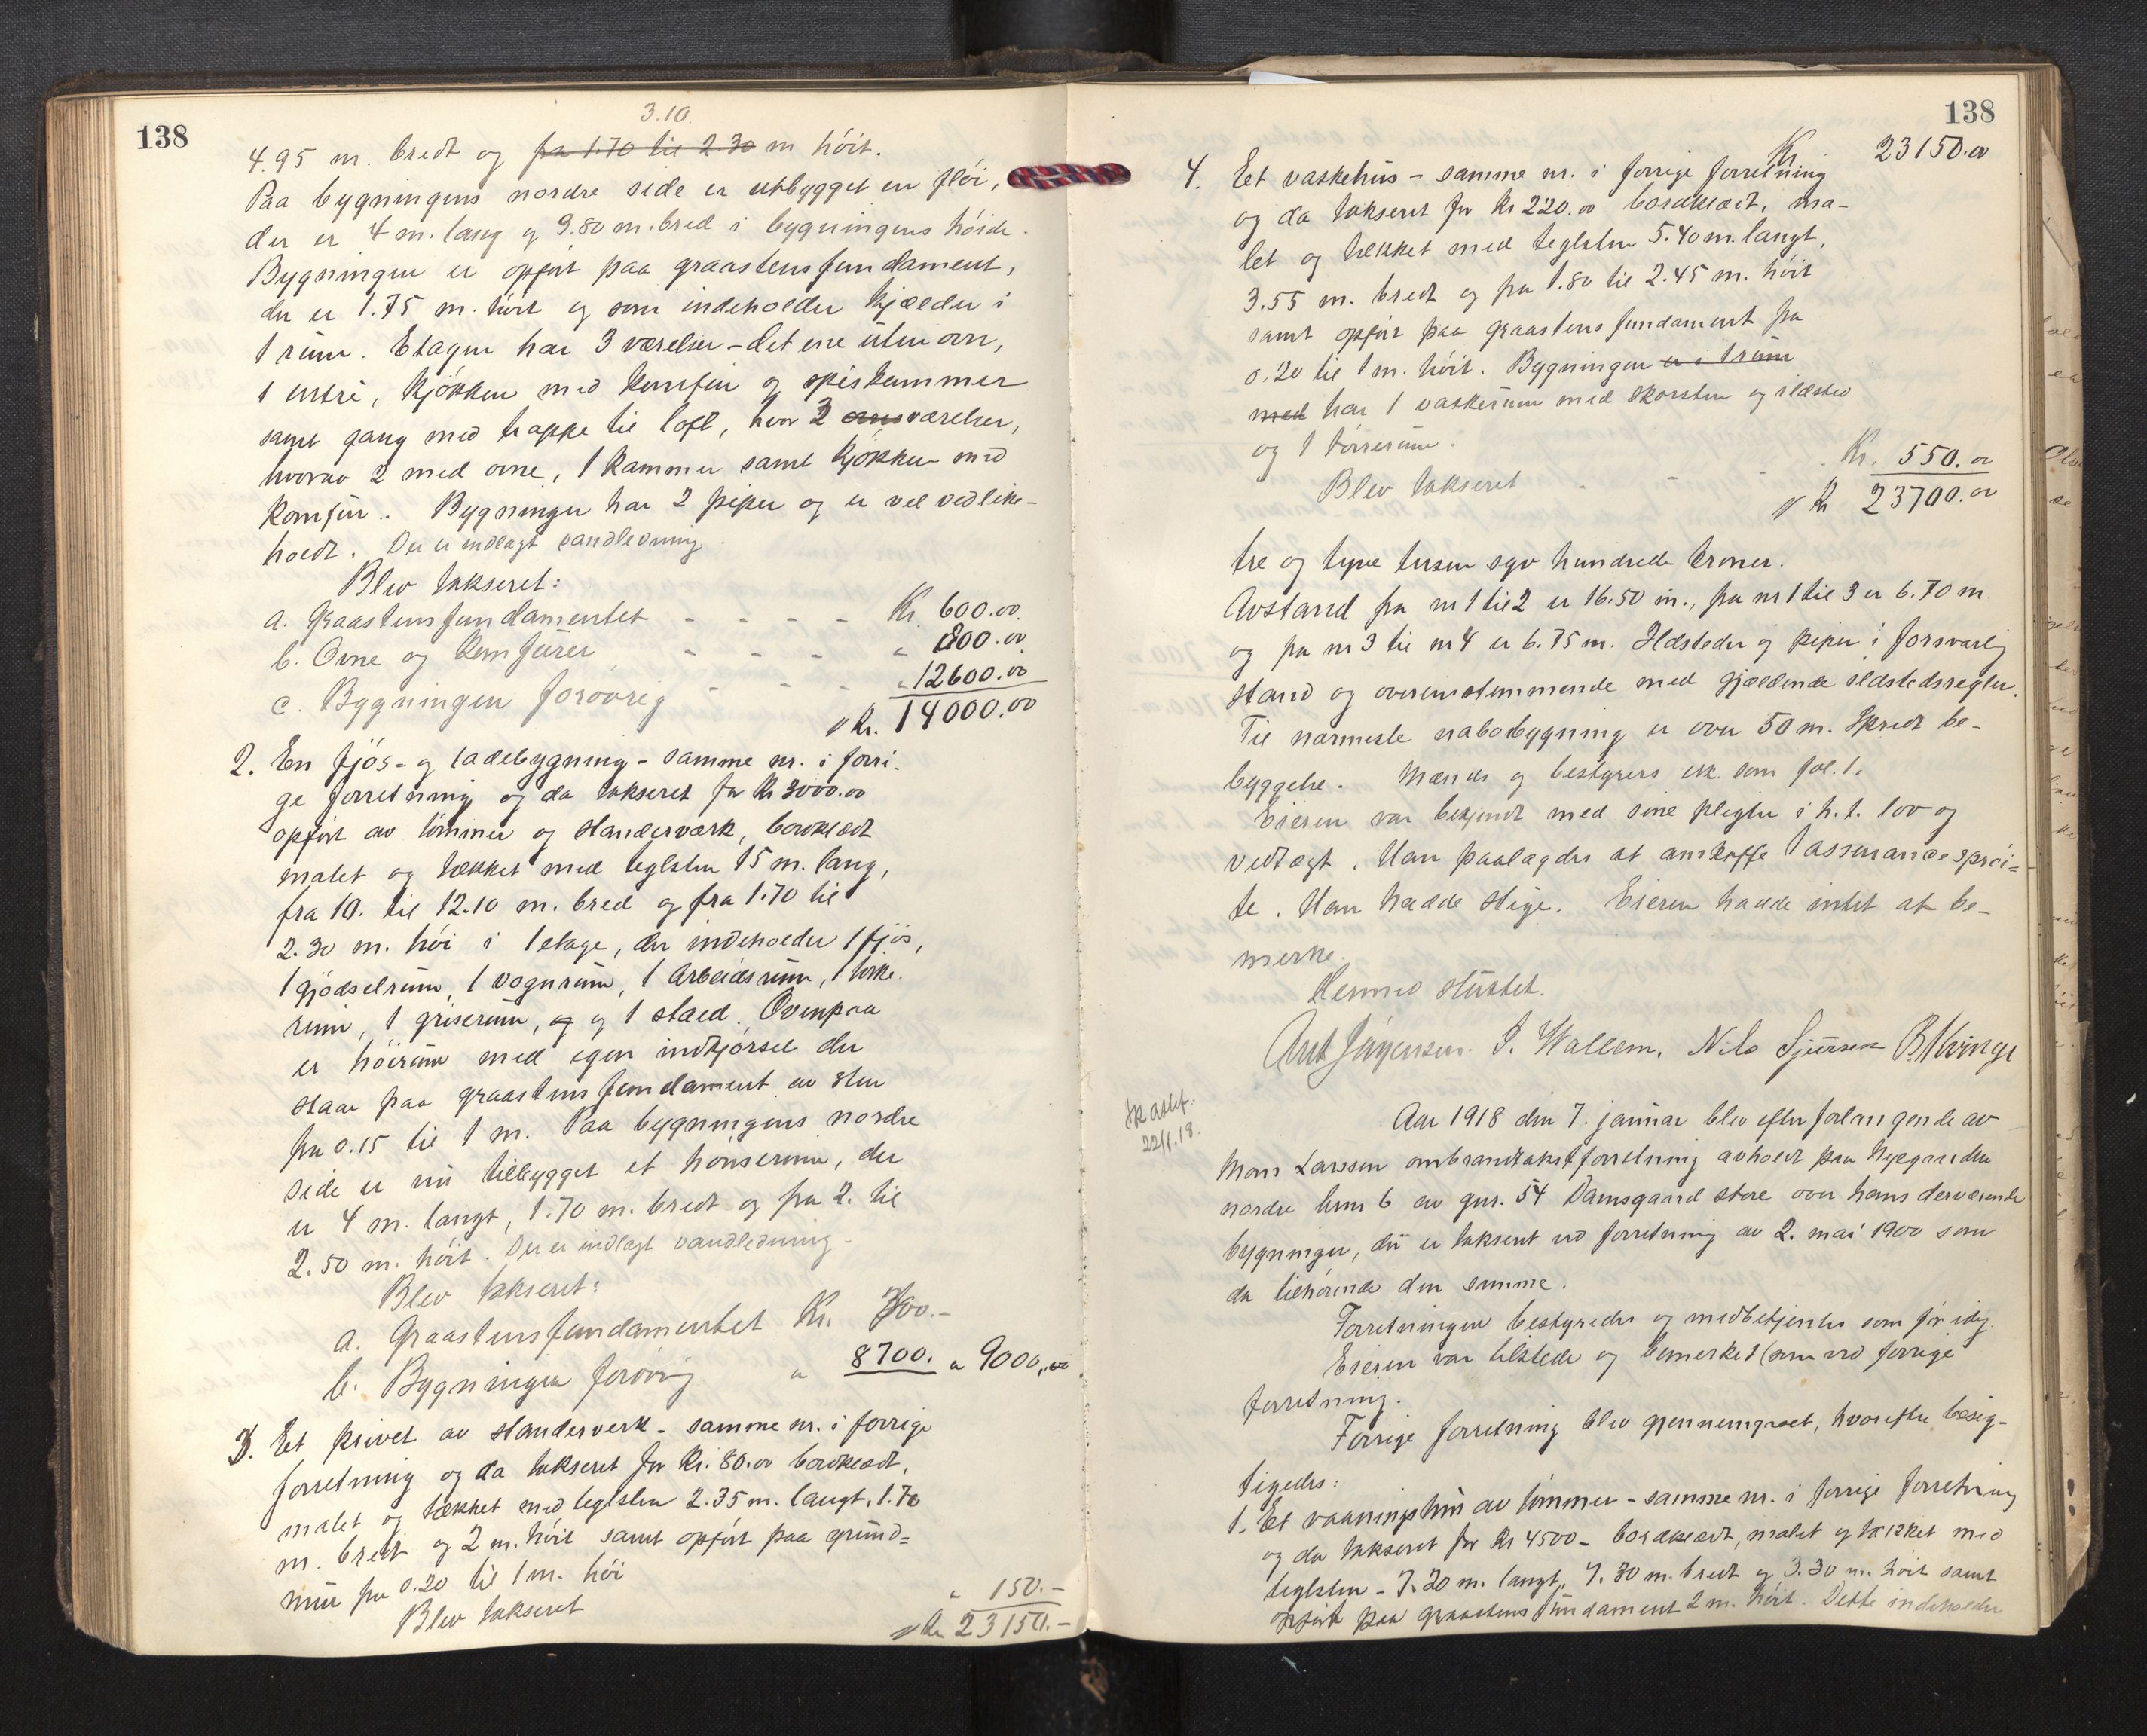 138
3.10
4.95 m. bredt og fra 1.70 til 2.30 m høit.
Paa bygningens nordre side er utbygget en fløi,
der er 4 m. lang og 9.80 m. bred i bygningens høide.
Bygningen er opført paa graastensfundament,
der er 1.75 m. høit og som indeholder kjælder i
1 rum. Etagen har 3 værelser - det ene uten ovn,
1 entré, kjøkken med komfur og spiskammer
samt gang med trappe til loft, hvor 3 værelser,
hvorav 2 med ovne, 1 kammer samt kjøkken med
komfur. Bygningen har 2 piper og er vel vedlike-
holdt. Der er indlagt vandledning.
Blev takseret:
a. Graastensfundamentet - - - - Kr. 600.00
b. Ovne og komfurer - - - " 800.00
c. Bygningen forøvrig - - - " 12600.00
Kr. 14000.00
2. En fjøs- og ladebygning - samme nr. i forri-
ge forretning og da takseret for Kr 3000.00
opført av tømmer og standerværk, bordklædt
malet og tækket med teglsten 15 m. lang,
fra 10. til 12.10 m. bred og fra 1.70 til
2.30 m. høi i 1 etage, der indeholder 1 fjøs,
1 gjødselrum, 1 vognrum, 1 arbeidsrum, 1 tørke-
rum, 1 griserum, og og 1 stald. Ovenpaa
er høirum med egen indkjørsel der
staar paa graastensfundament av sten
fra 0.15 til 1 m. Paa bygningens nordre
side er nu tilbygget et hønserum, der
er 4 m. langt, 1.70 m. bredt og fra 2. til
2.50 m. høit. Der er indlagt vandledning.
Blev takseret:
a. Graastensfundamentet Kr. 300.-
b. Bygningen forøvrig " 8700. " 9000.00
3. Et privet av standerverk - samme nr. i forrige
forretning og da takseret for Kr. 80.00 bordklædt,
malet og tækket med teglsten 2.35 m. langt, 1.70
m. bredt og 2 m. høit samt opført paa grund-
mur fra 0.20 til 1 m. høi
Blev takseret " 150.-
Kr 23150.-
138
Kr. 23150.00
4. Eet vaskehus - samme nr. i forrige forretning
og da takseret for Kr 220.00 bordklædt, ma-
let og tækket med teglsten 5.40 m. langt,
3.55 m. bredt og fra 1.80 til 2.45 m. høit
samt opført paa graastensfundament fra
0.20 til 1 m. høit. Bygningen er i 1 rum
med har 1 vaskerum med skorsten og ildsted
og 1 tørrerum.
Blev takseret - - - Kr. 550.00
Kr 23700.00
tre og tyve tusen syv hundrede kroner.
Avstand fra nr 1 til 2 er 16.50 m., fra nr 1 til 3 er 6.70 m.
og fra nr 3 til nr 4 er 6.75 m. Ildsteder og piper i forsvarlig
stand og overensstemmende med gjældende ildstedsregler.
Til nærmeste nabobygning er over 50 m. Spredt be-
byggelse. Mænds og bestyrers erk. som fol. 1.
Eieren var bekjendt med sine pligter i h. t. lov og
vedtægt. Han paalagdes at anskaffe 1 assurancesprøi-
te. Han hadde stige. Eieren hadde intet at be-
merke.
Dermed sluttet.
Ant Jörgensen. S. Wallem. Nils Sjursen B. Kvinge
22/1.18.
Aar 1918 den 7. januar blev efter forlangende av
Mons Larssen ombrandtakstforretning avholdt paa Nygaarden
nordre brnr 6 av gnr. 54 Damsgaard store over hans derværende
bygninger, der er takseret ved forretning av 2. mai 1900 som
da tilhørende den samme.
Forretningen bestyredes og medbetjentes som før idg.
Eieren var tilstede og bemerket som ved forrige
forretning.
Forrige forretning blev gjennemgaaet, hvorefter besig-
tigedes:
1. Et vaaningshus av tømmer - samme nr. i forrige forretning
og da takseret for Kr 4500 - bordklædt, malet og tækket med
teglsten - 7.20 m. langt, 7.30 m. bredt og 3.30 m. høit samt
opført paa graastensfundament 2 m. høit. Dette indeholder